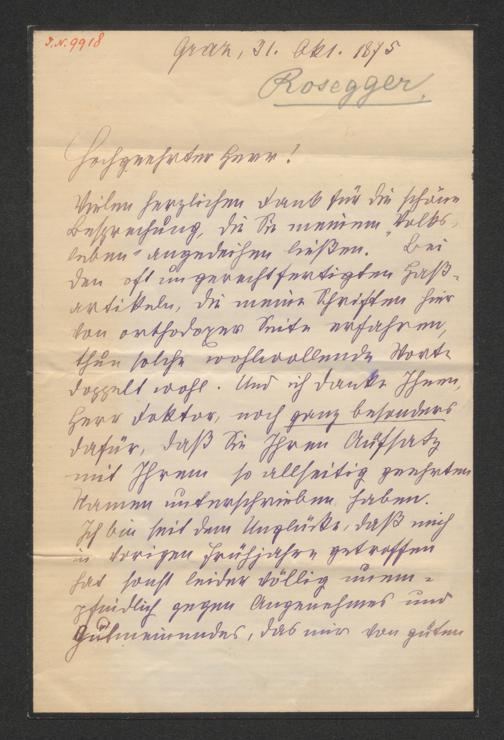 J.N. 9918
Graz, 31. Okt. 1875
Rosegger.
Hochgeehrter Herr!
Vielen herzlichen Dank für die schöne
Besprechung, die Sie meinem "Volks-
leben" angedeihen ließen. Bei
den oft ungerechtfertigten Haß-
artikeln, die meine Schriften hier
von orthodoxer Seite erfahren,
thun solche wohlwollende Worte
doppelt wohl. Und ich danke Ihnen,
Herr Doktor, noch ganz besonders
dafür, daß Sie Ihren Aufsatz
mit Ihrem so allseitig geehrten
Namen unterschrieben haben.
Ich bin seit dem Unglücke, daß mich
im vorigen Frühjahre getroffen
hat sonst leider völlig unem-
pfindlich gegen Angenehmes und
Gutmeinendes, das mir von guten